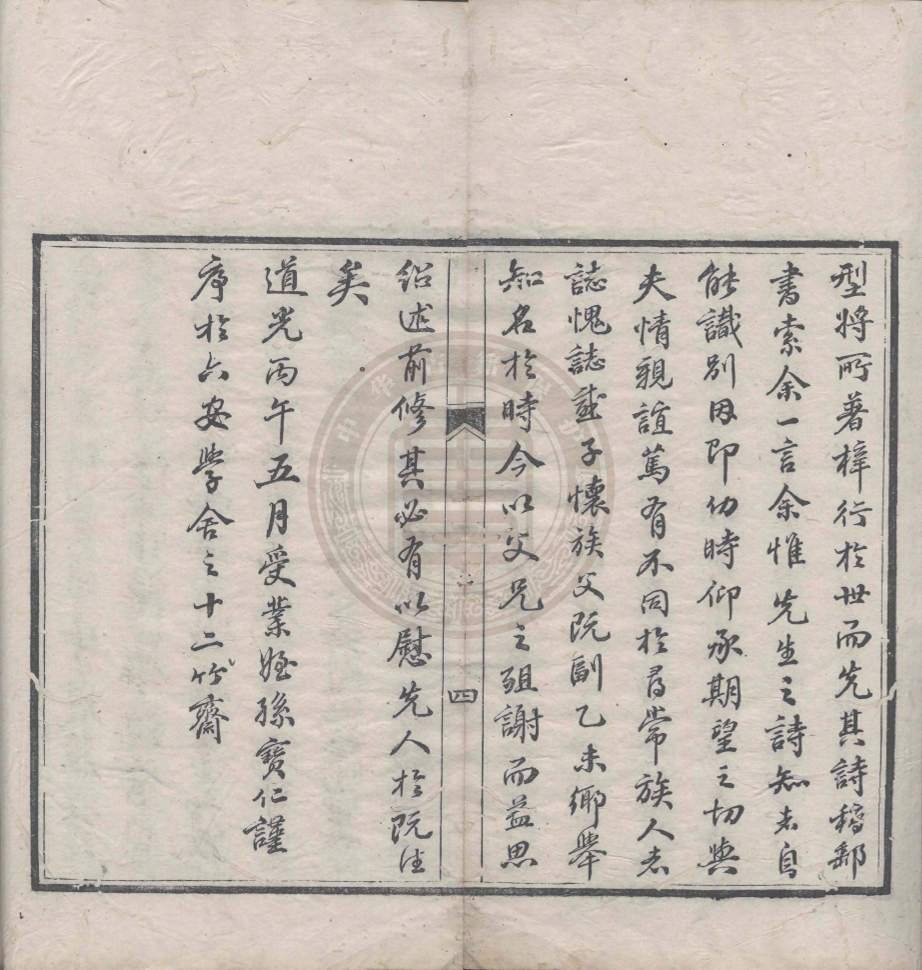 型將所著梓行於世而先其詩稿郵
書索余一言余惟先生之詩知者自
能識別因即幼時仰承期望之切與
夫情親誼篤有不同於尋常族人者
誌愧誌感子懷族父既副乙未鄉舉
知名於時今以父兄之殂謝而益思
四
紹述前修其必有以慰先人於既往
矣
道光丙午五月受業姪孫寶仁謹
序於六安學舍之十二竹齋